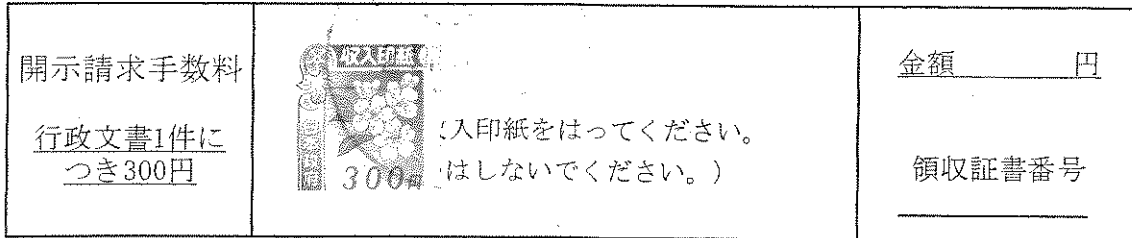 開示請求手数料
行政文書1件に
つき300円
収入印紙
300円
入印紙をはってください。
はしないでください。)
金額 円
領収証書番号